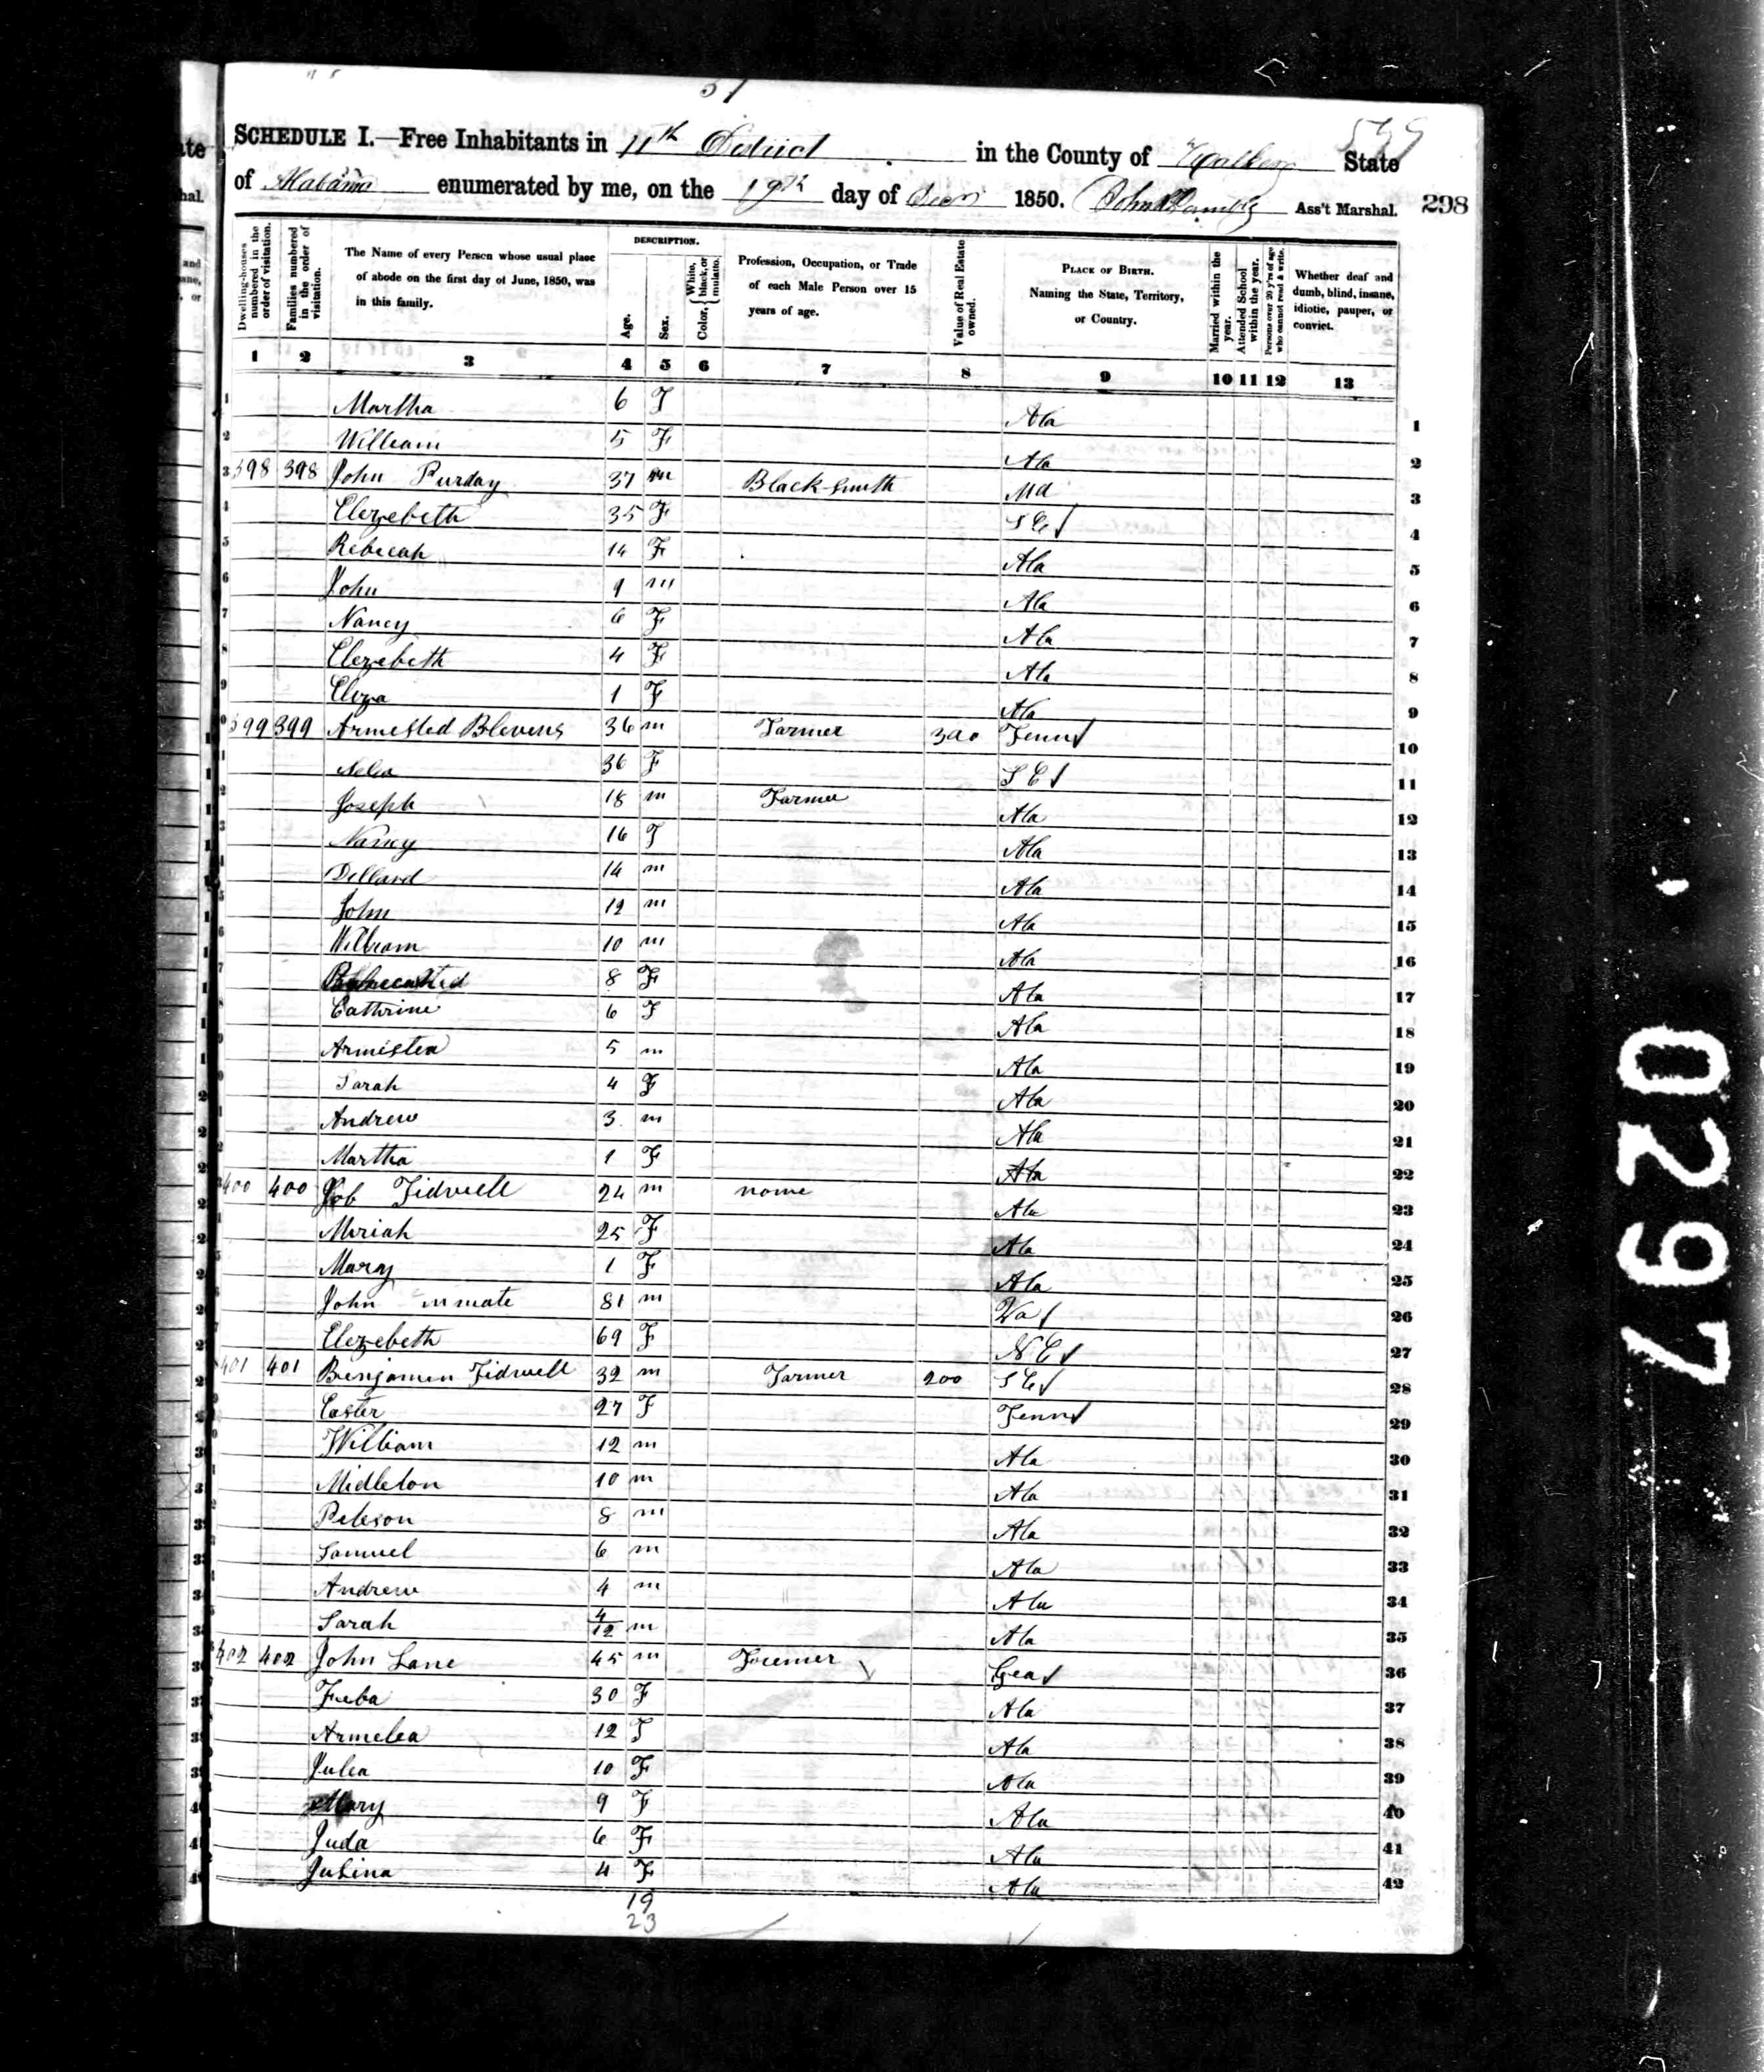 57
SCHEDULE I.—Free Inhabitants in 11th District in the County of State
of Alabama enumerated by me, on the 19th day of 1850. John Ass't Marshal. 298
Dwelling-houses numbered in the order of visitation.
Families numbered in the order of visitation.
The Name of every Person whose usual place of abode on the first day of June, 1850, was in this family.
DESCRIPTION.
Age.
Sex.
Color, { White, black, or mulatto.
Profession, Occupation, or Trade of each Male Person over 15 years of age.
Value of Real Estate owned.
PLACE OF BIRTH. Naming the State, Territory, or Country.
Married within the year.
Attended School within the year.
Persons over 20 y'rs of age who cannot read & write.
Whether deaf and dumb, blind, insane, idiotic, pauper, or convict.
1 2 3 4 5 6 7 8 9 10 11 12 13
1 Martha 6 F Ala 1
2 William 5 F Ala 2
3 398 398 John Purday 37 m Black Smith Md 3
4 Elezebeth 35 F S C 4
5 Rebecah 14 F Ala 5
6 John 9 m Ala 6
7 Nancy 6 F Ala 7
8 Elezebeth 4 F Ala 8
9 Eleza 1 F Ala 9
399 399 Armested Blevens 36 m Farmer 300 Tenn 10
36 F S C 11
Joseph 18 m Farmer Ala 12
Nancy 16 F Ala 13
Dellard 14 m Ala 14
John 12 m Ala 15
William 10 m Ala 16
8 F Ala 17
Cathrine 6 F Ala 18
Armisted 5 m Ala 19
Sarah 4 F Ala 20
Andrew 3 m Ala 21
Martha 1 F Ala 22
400 400 Job Tidwell 24 m none Ala 23
Meriah 25 F Ala 24
Mary 1 F Ala 25
John inmate 81 m Va 26
Elezebeth 69 F N C 27
401 401 Benjamin Tidwell 32 m Farmer 200 S C 28
Easter 27 F Tenn 29
William 12 m Ala 30
Midleton 10 m Ala 31
Peterson 8 m Ala 32
Samuel 6 m Ala 33
Andrew 4 m Ala 34
Sarah 4/12 m Ala 35
402 402 John Lane 45 m Geo 36
Feba 30 F Ala 37
Armelea 12 F Ala 38
Julea 10 F Ala 39
Mary 9 F Ala 40
Juda 6 F Ala 41
4 F Ala 42
19
23
0297